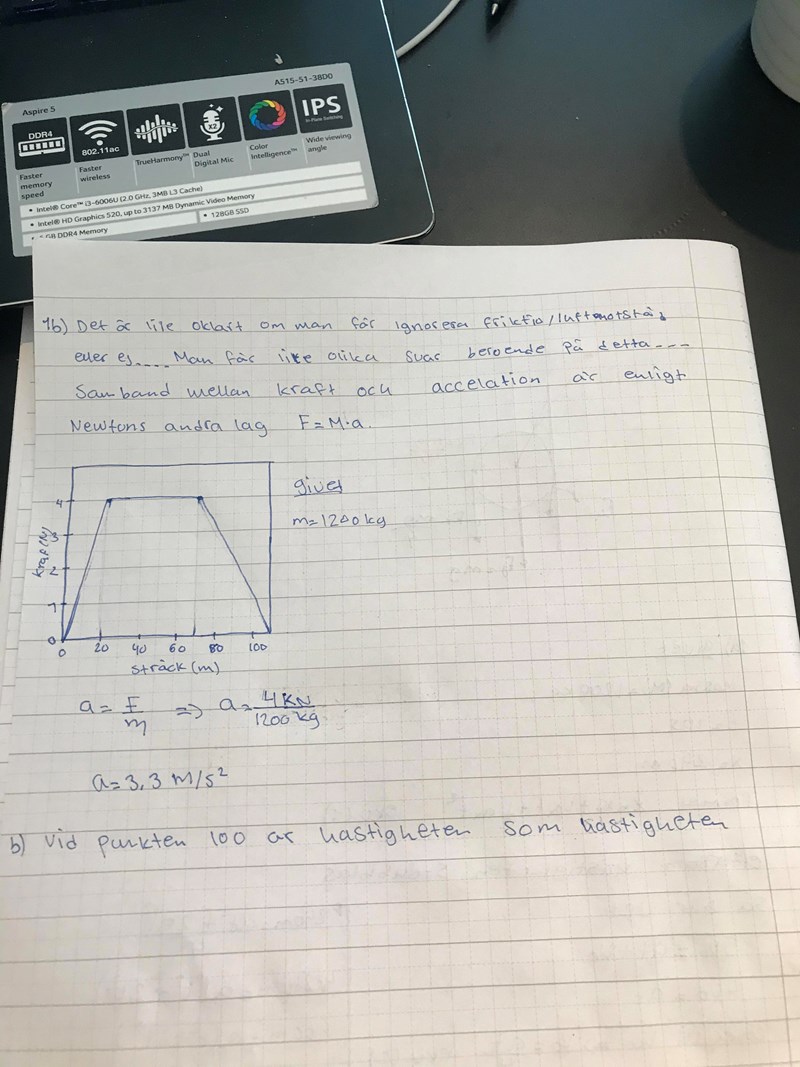 A515-51-38D0
Aspire 5
DDR4
802.11ac
x2
IPS
In-Plane Switching
Faster memory speed
Faster wireless
TrueHarmony™
Dual Digital Mic
Color Intelligence™
Wide viewing angle
• Intel® Core™ i3-6006U (2.0 GHz, 3MB L3 Cache)
• Intel® HD Graphics 520, up to 3137 MB Dynamic Video Memory
GB DDR4 Memory
• 128GB SSD
1b) Det är lite oklart om man får ignorera friktio/luftmotstå
eller ej.... Man får lite olika svar beroende på detta----
Samband mellan kraft och accelation är enligt
Newtons andra lag F=M·a.
4
3
2
1
0
kraf (N)
0 20 40 60 80 100
sträck (m)
gives
m=1200kg
a = F/m => a = 4KN/1200kg
a=3,3 M/s²
b) vid punkten 100 ar hastigheten som hastigheten